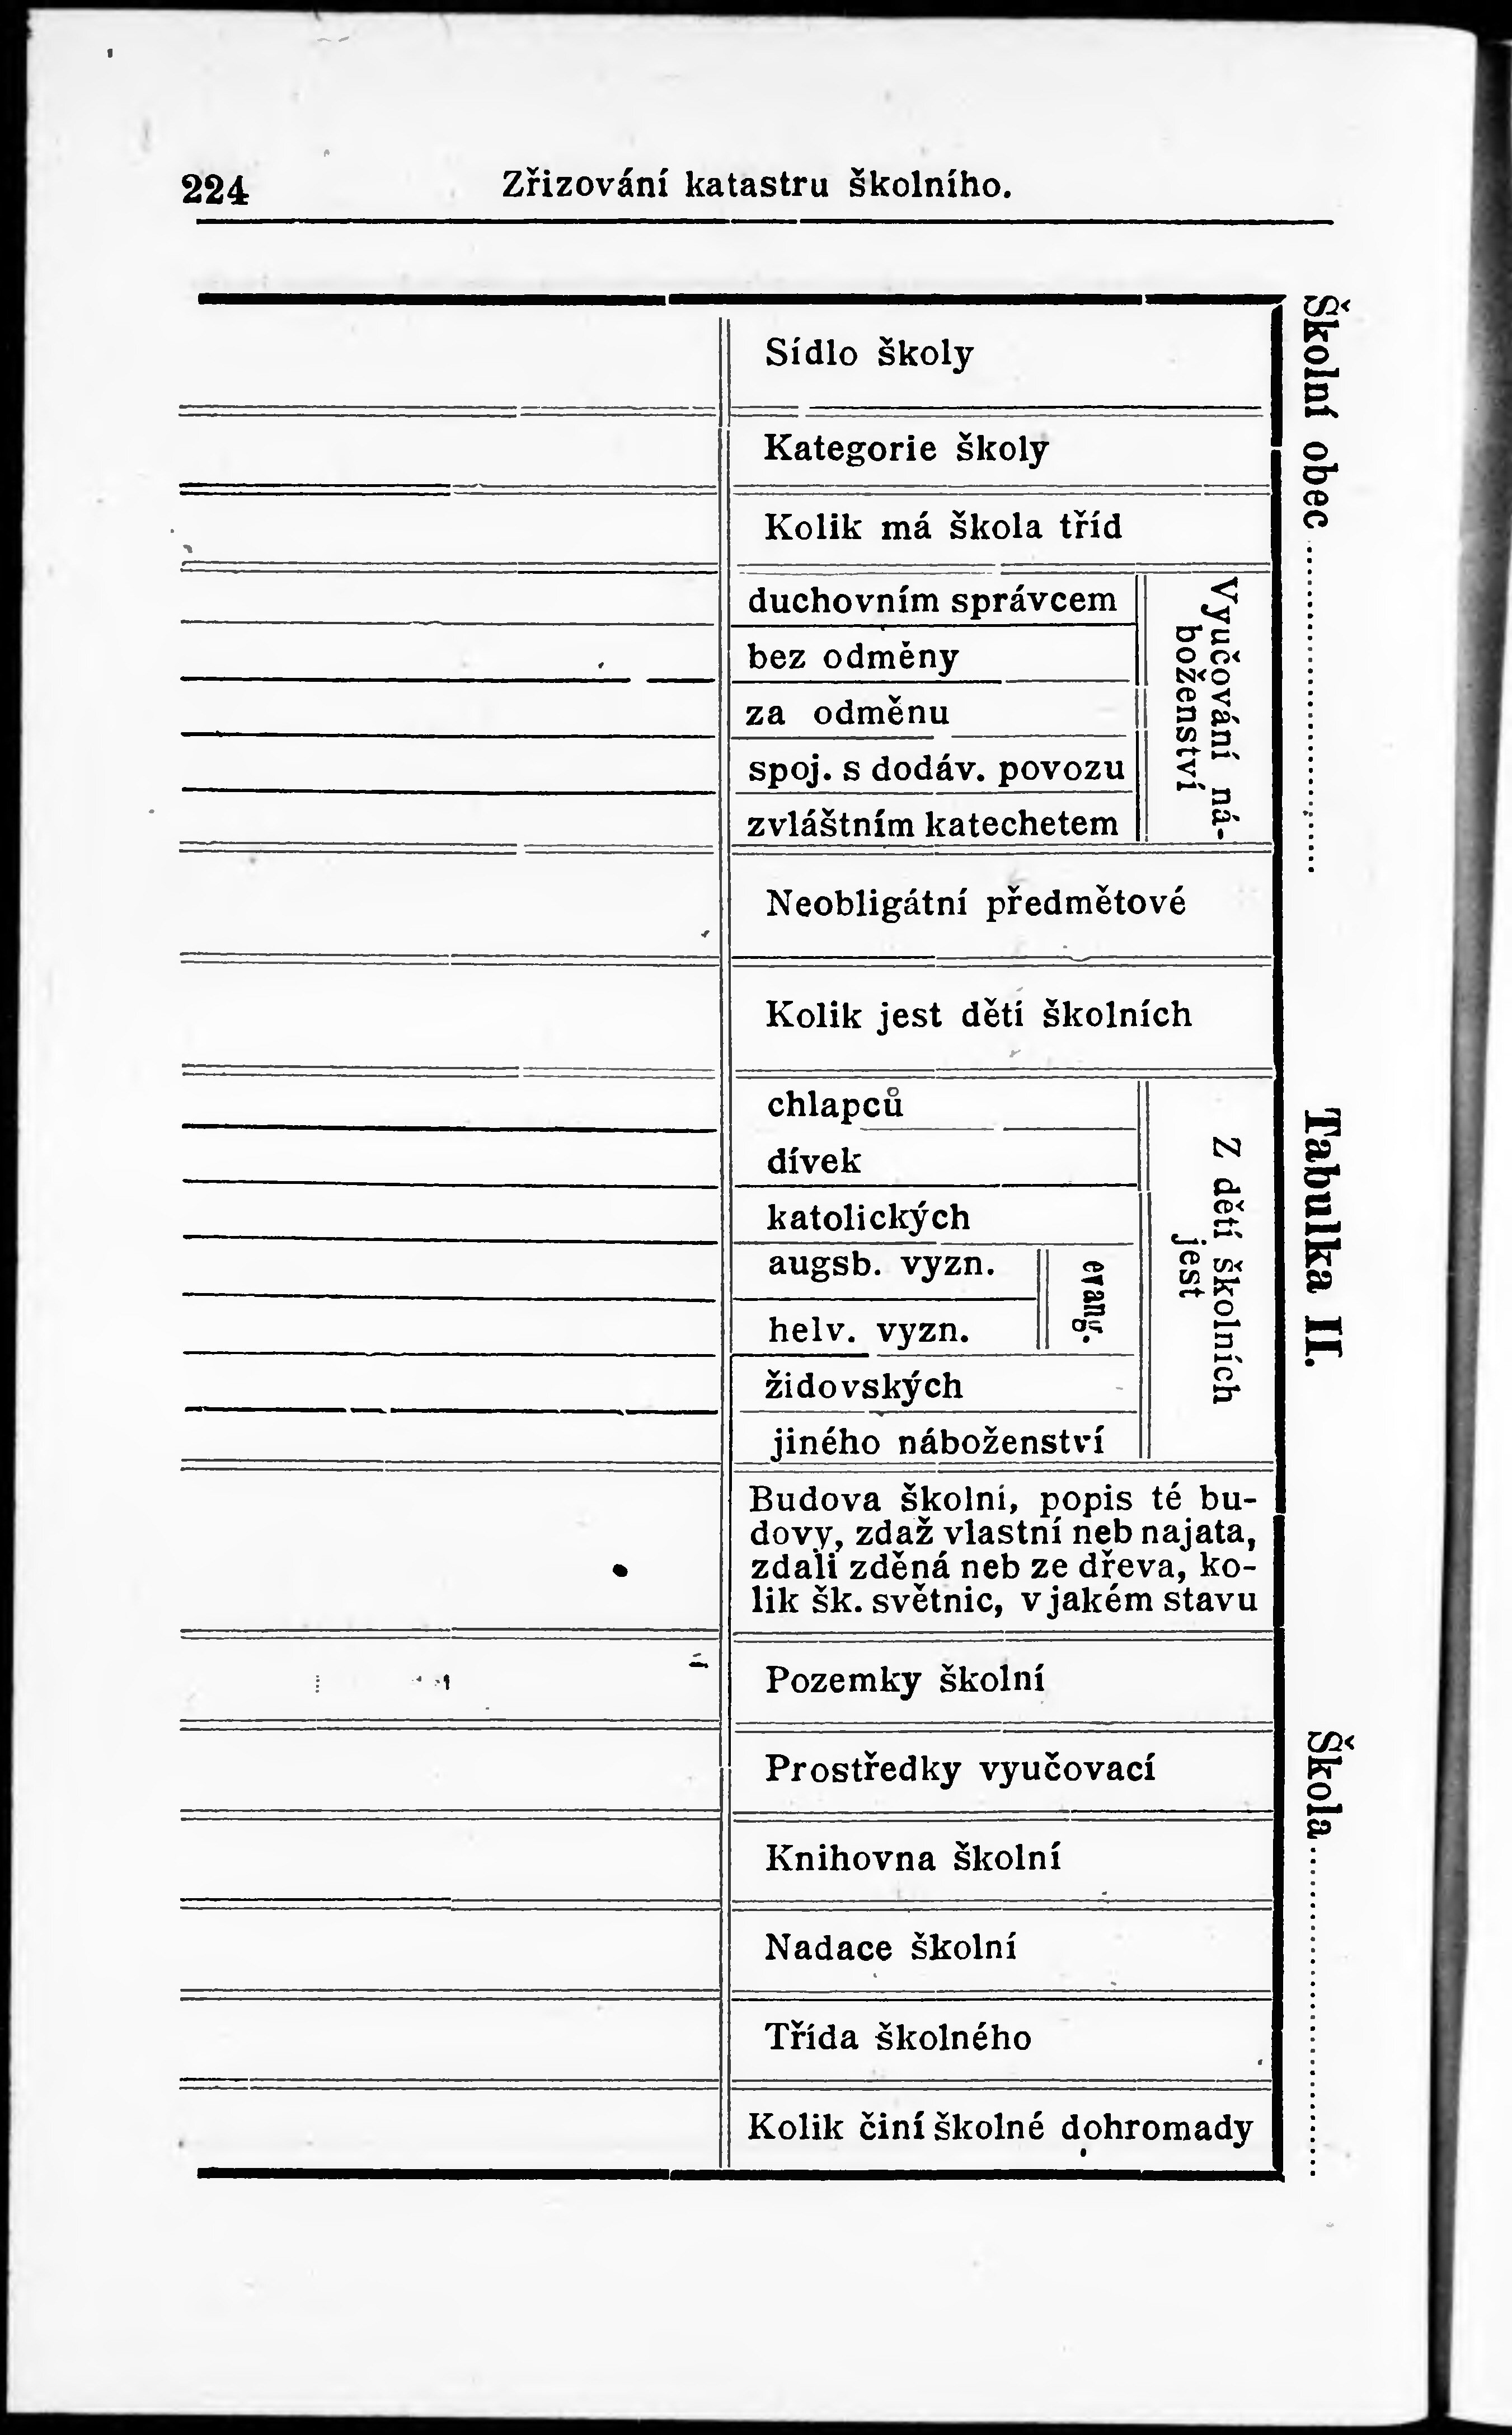 224
Zřizování katastru školního.
Školní obec
Tabulka II.
Škola
Sídlo školy
Kategorie školy
Kolik má škola tříd
Vyučování ná-
boženství
duchovním správcem
bez odměny
za odměnu
spoj. s dodáv. povozu
zvláštním katechetem
Neobligátní předmětové
Kolik jest dětí školních
Z dětí školních
jest
chlapců
dívek
katolických
evang.
augsb. vyzn.
helv. vyzn.
židovských
jiného náboženství
Budova školní, popis té bu-
dovy, zdaž vlastní neb najata,
zdali zděná neb ze dřeva, ko-
lik šk. světnic, v jakém stavu
Pozemky školní
Prostředky vyučovací
Knihovna školní
Nadace školní
Třída školného
Kolik činí školné dohromady